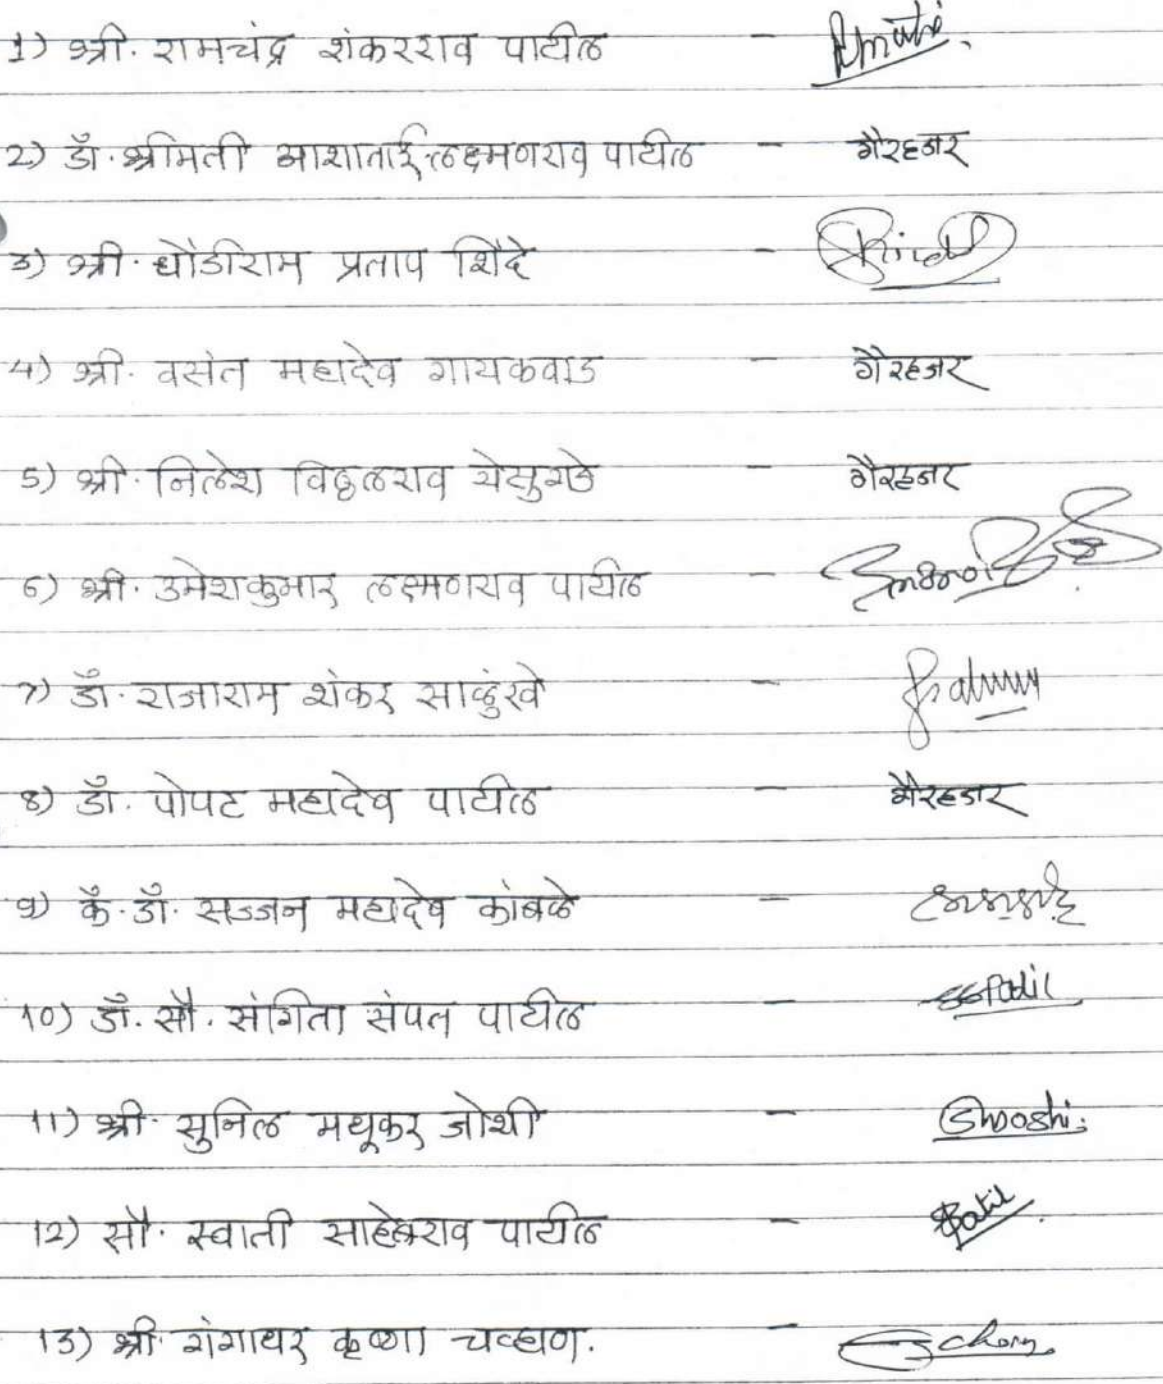 1) श्री. रामचंद्र शंकरराव पाटील -
2) डॉ. श्रीमती आशाताई लक्ष्मणराव पाटील - गैरहजर
3) श्री. धोंडीराम प्रताप शिंदे -
4) श्री. वसंत महादेव गायकवाड - गैरहजर
5) श्री. निलेश विठ्ठलराव येसुगडे - गैरहजर
6) श्री. उमेशकुमार लक्ष्मणराव पाटील -
7) डॉ. राजाराम शंकर साळुंखे -
8) डॉ. पोपट महादेव पाटील - गैरहजर
9) कॅ. डॉ. सज्जन महादेव कांबळे -
10) डॉ. सौ. संगिता संपत पाटील - SSPatil
11) श्री. सुनिल मधूकर जोशी -
12) सौ. स्वाती साहेबराव पाटील - Patil
13) श्री. गंगाधर कृष्णा चव्हाण. -